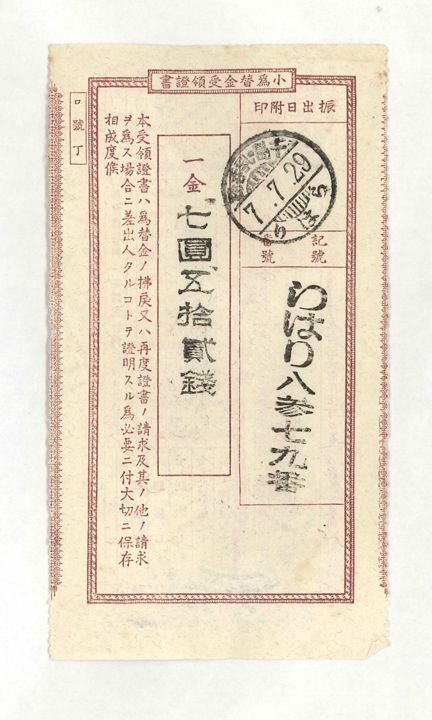 小爲替金受領證書
振出日附印
7.7.29
記號
番號
わはり八参七九番
一金
七圓五拾貳錢
本受領證書ハ爲替金ノ拂戻又ハ再度證書ノ請求及其ノ他ノ請求
ヲ爲ス場合ニ差出人タルコトヲ證明スル爲必要ニ付大切ニ保存
相成度候
ロ號丁